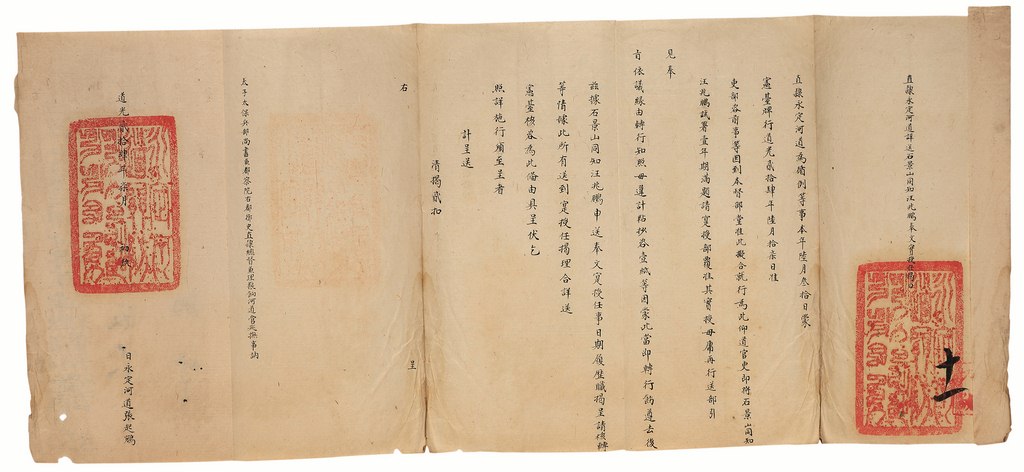 直隸永定河道詳送石景山同知汪兆鵬奉文實授任揭由
十一
直隸永定河道為循例等事本年陸月叁拾日蒙
憲臺牌行道光貳拾肆年陸月拾柒日准
吏部咨前事等因到本督部堂准此擬合就行為此仰道官吏即將石景山同知
汪兆鵬試署壹年期滿題請實授部覆准其實授毋庸再行送部引
見奉
旨依議緣由轉行知照毋違計粘抄咨壹紙等因蒙此當即轉行飭遵去後
茲據石景山同知汪兆鵬申送奉文實授任事日期履歷職揭呈請核轉
等情據此所有送到實授任揭理合詳送
憲臺核咨為此備由具呈伏乞
照詳施行須至呈者
計呈送
清揭貳扣
右 呈
太子太保兵部尚書兼都察院右都御史直隸總督兼理糧餉河道管巡撫事訥
道光貳拾肆年柒月 初 日永定河道張起鵷